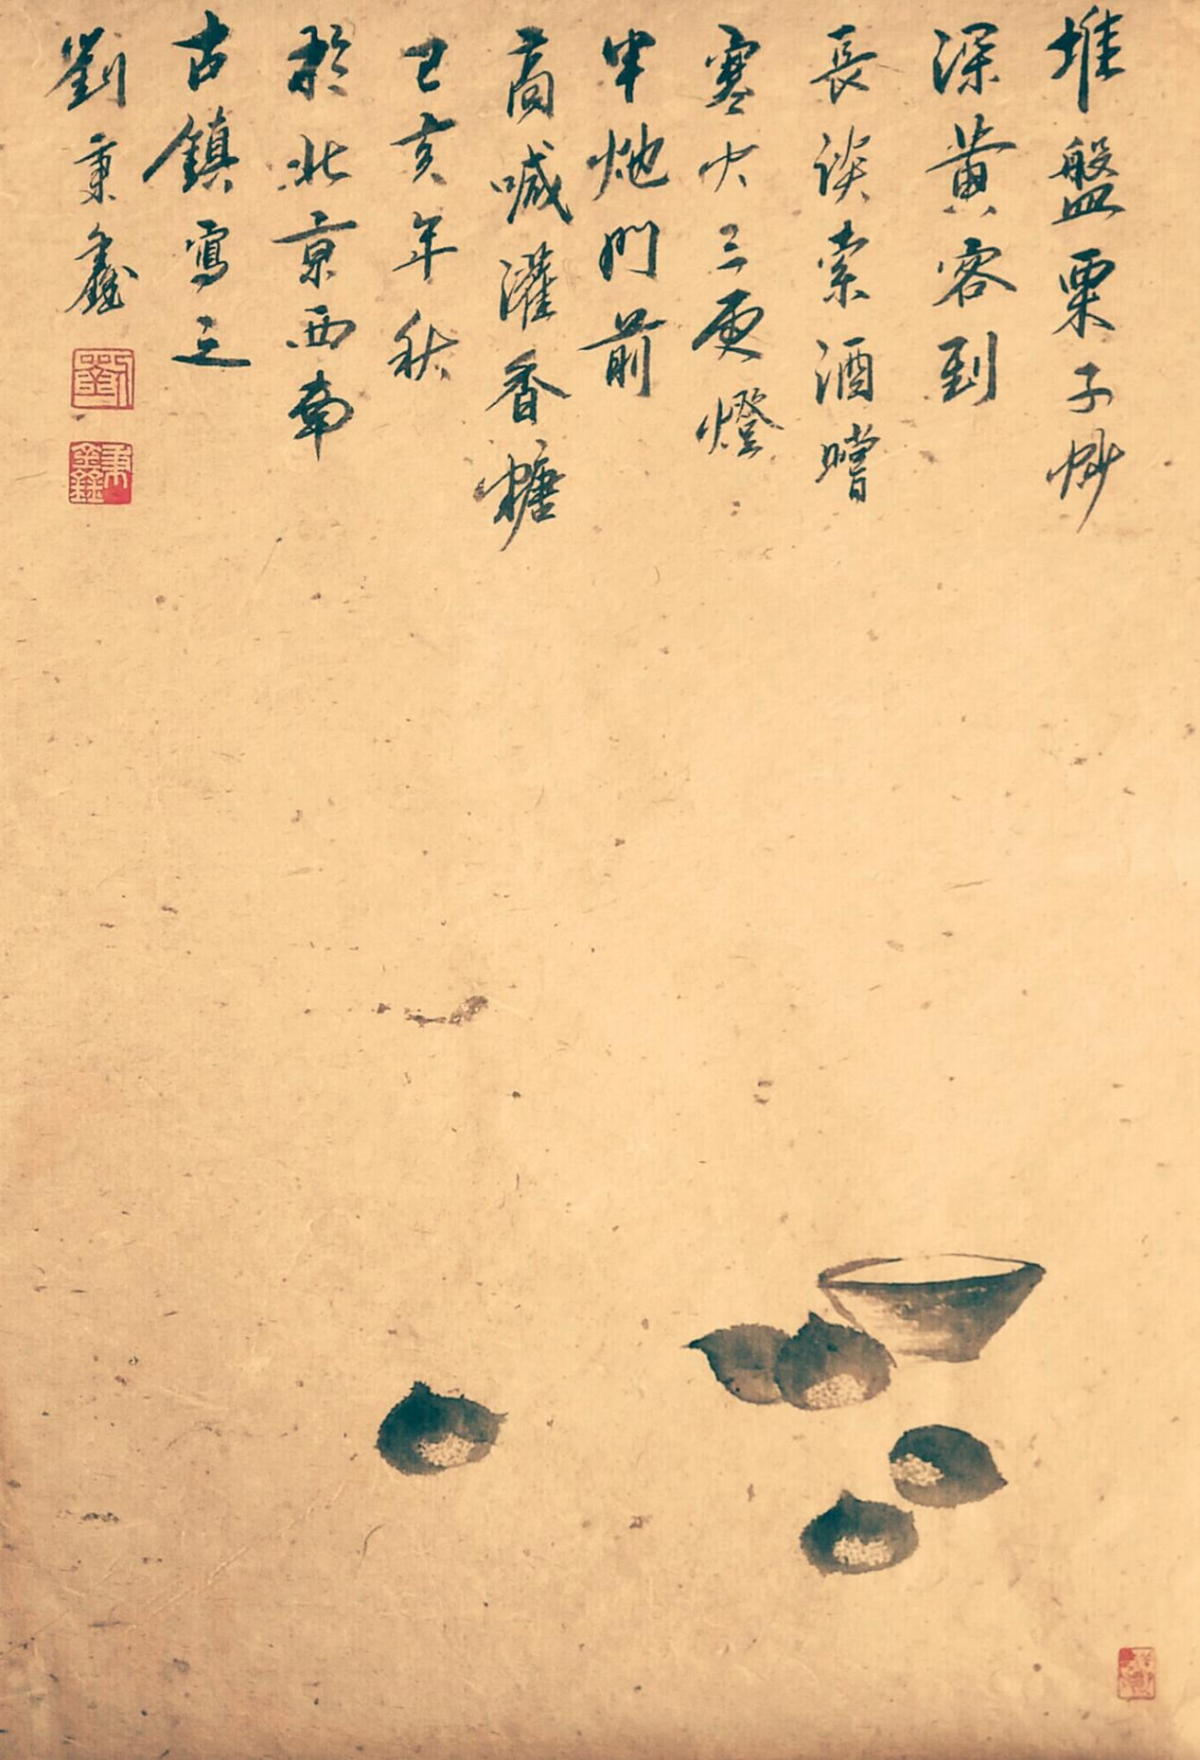 堆盤栗子炒
深黄客到
長談索酒嘗
寒火三更燈
半灺門前
高喊灌香糖
己亥年秋
於北京西南
古鎮寫之
劉秉鑫
劉
秉鑫